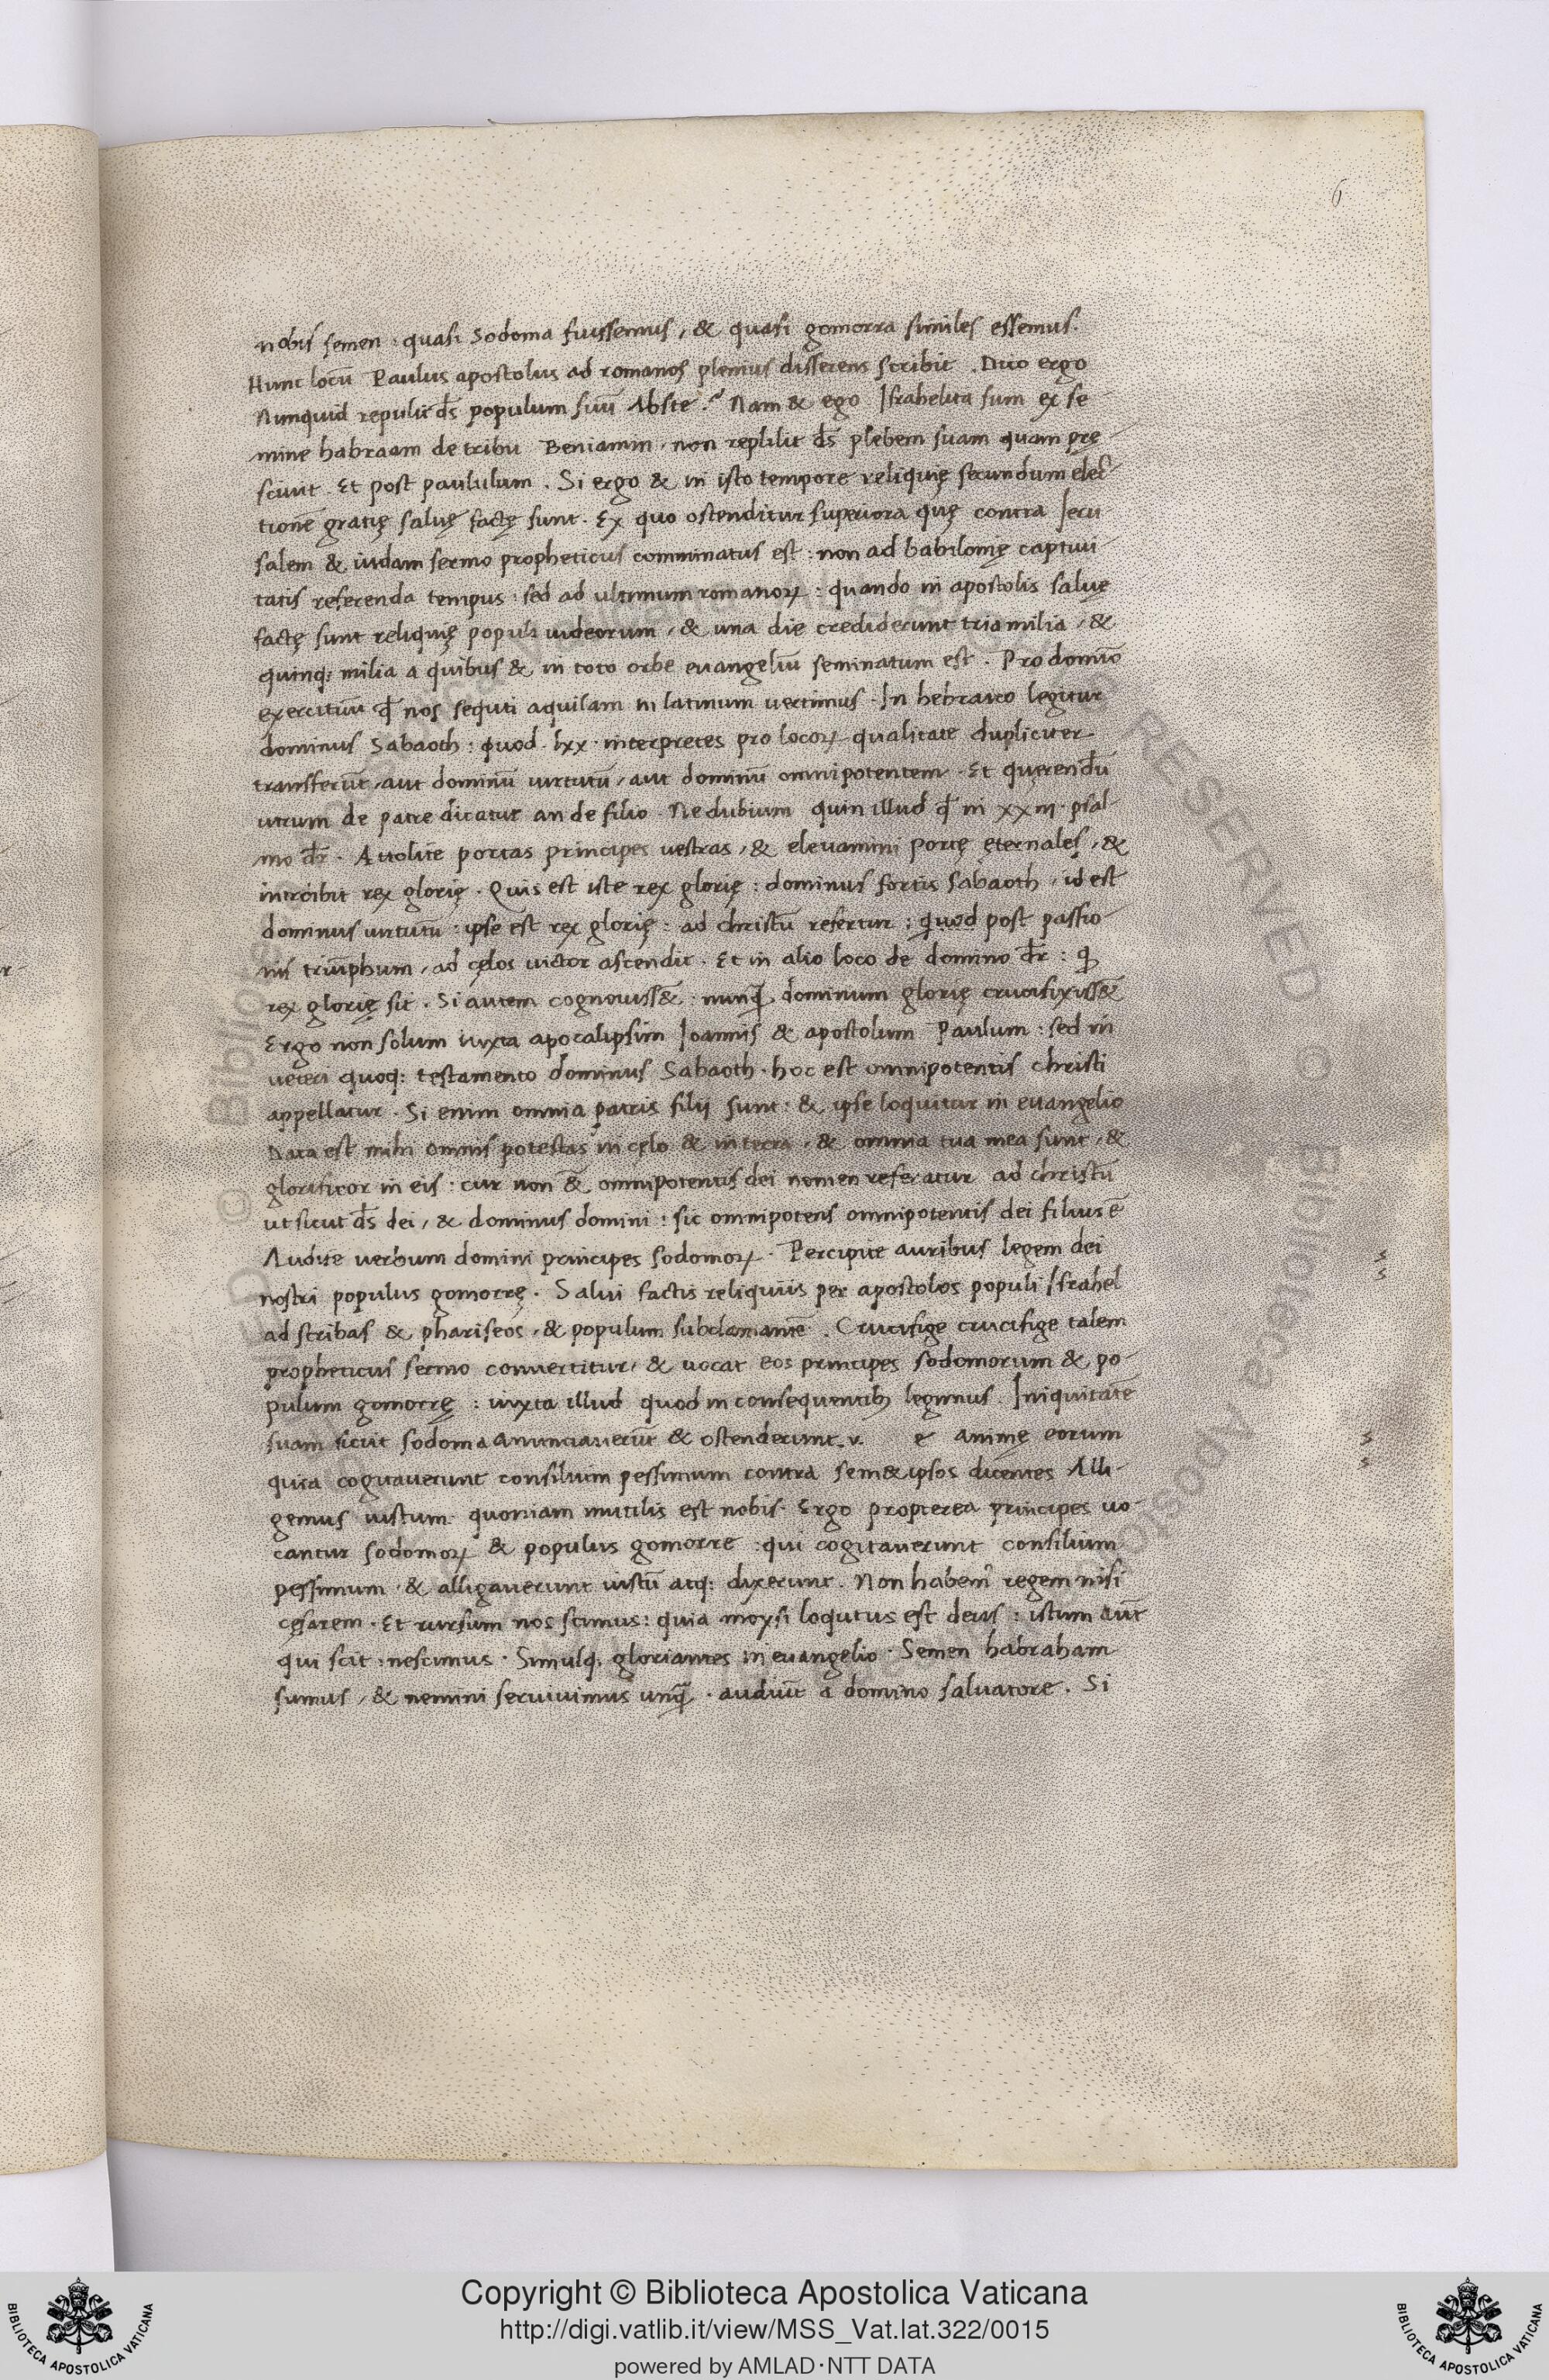 6
nobis semen : quasi Sodoma fuissemus, & quasi gomorra similes essemus.
Hunc locū Paulus apostolus ad romanos plenius disserens scribit . Dico ergo
Nunquid repulit d̄s populum suū Abste? Nam & ego Israhelita sum ex se
mine habraam de tribu Beniamin . non replilit d̄s plebem suam quam prę-
sciuit . Et post paululum . Si ergo & in isto tempore reliquię secundum elec-
tionē gratię saluę factę sunt . Ex quo ostenditur superiora quę contra Ieru
salem & iudam sermo propheticus comminatus est : non ad babilonię captiui-
tatis referenda tempus : sed ad ultimum romanoꝝ : quando in apostolis saluę
factę sunt reliquię populi iudeorum, & una die crediderunt tria milia, &
quinq; milia a quibus & in toto orbe euangeliū seminatum est . Pro domīo
exercituū qđ nos sequti aquilam in latinum uertimus . In hebraico legitur
dominus Sabaoth : quod . lxx . interpretes pro locoꝝ qualitate dupliciter
transferūt, aut dominū uirtutū, aut dominū omnipotentem . Et quęrendū
utrum de patre dicatur an de filio . Ne dubium quin illud qđ in xxiii . psal-
mo dr̄ . Attolite portas principes uestras, & eleuamini portę ęternales, &
introibit rex glorię . Quis est iste rex glorię : dominus fortis Sabaoth, id est
dominus uirtutū : ipse est rex glorię : ad christū refertur : quod post passio-
nis triūphum, ad cęlos uictor ascendit . Et in alio loco de domino dr̄ : ꝙ
rex glorię sit . Si autem cognouiss&̄ : nunꝙ̄ dominum glorię crucifixiss&̄
Ergo non solum iuxta apocalipsim Ioannis & apostolum Paulum : sed in
ueteri quoq; testamento dominus Sabaoth . hoc est omnipotentis christi
appellatur . Si enim omnia patris filij sunt : & ipse loquitur in euangelio
Data est mihi omnis potestas in cęlo & in terra, & omnia tua mea sunt, &
glorificor in eis : cur non & omnipotentis dei nomen referatur ad christū
ut sicut d̄s dei, & dominus domini : sic omnipotens omnipotentis dei filius ē
Audite uerbum domini principes sodomoꝝ . Percipite auribus legem dei
nostri populus gomorrę . Salui factis reliquiis per apostolos populi Israhel
ad scribas & phariseos, & populum subclamantē . Crucifige crucifige talem
propheticus sermo conuertitur, & uocat eos principes sodomorum & po-
pulum gomorrę : iuxta illud quod in consequentibꝫ legimus . Iniquitatē
suam sicut sodoma anunciauerūt & ostenderunt . v. e animę eorum
quia cogitauerunt consilium pessimum contra sem&ipsos dicentes Alli-
gemus iustum quoniam inutilis est nobis . Ergo propterea principes uo-
cantur sodomoꝝ & populus gomorre : qui cogitauerunt consilium
pessimum . & alligauerunt iustū atq; dixerunt . Non habem᷒ regem nisi
cęsarem . Et rursum nos scimus : quia moysi loqutus est deus : istum aūt
qui scit : nescimus . Simulq; gloriantes in euangelio . Semen habraham
sumus, & nemini seruiuimus unꝙ̄ . audiūt a domino saluatore . Si
Copyright © Biblioteca Apostolica Vaticana
http://digi.vatlib.it/view/MSS_Vat.lat.322/0015
powered by AMLAD·NTT DATA
BIBLIOTECA APOSTOLICA VATICANA
BIBLIOTECA APOSTOLICA VATICANA